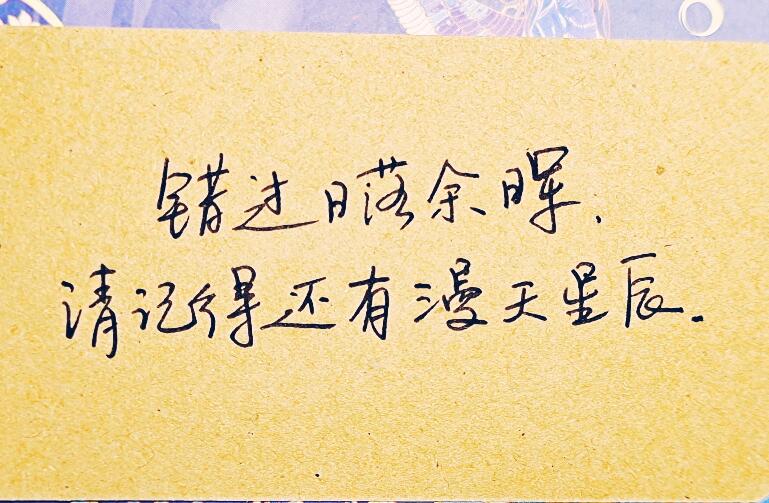 错过日落余晖,
请记得还有漫天星辰.